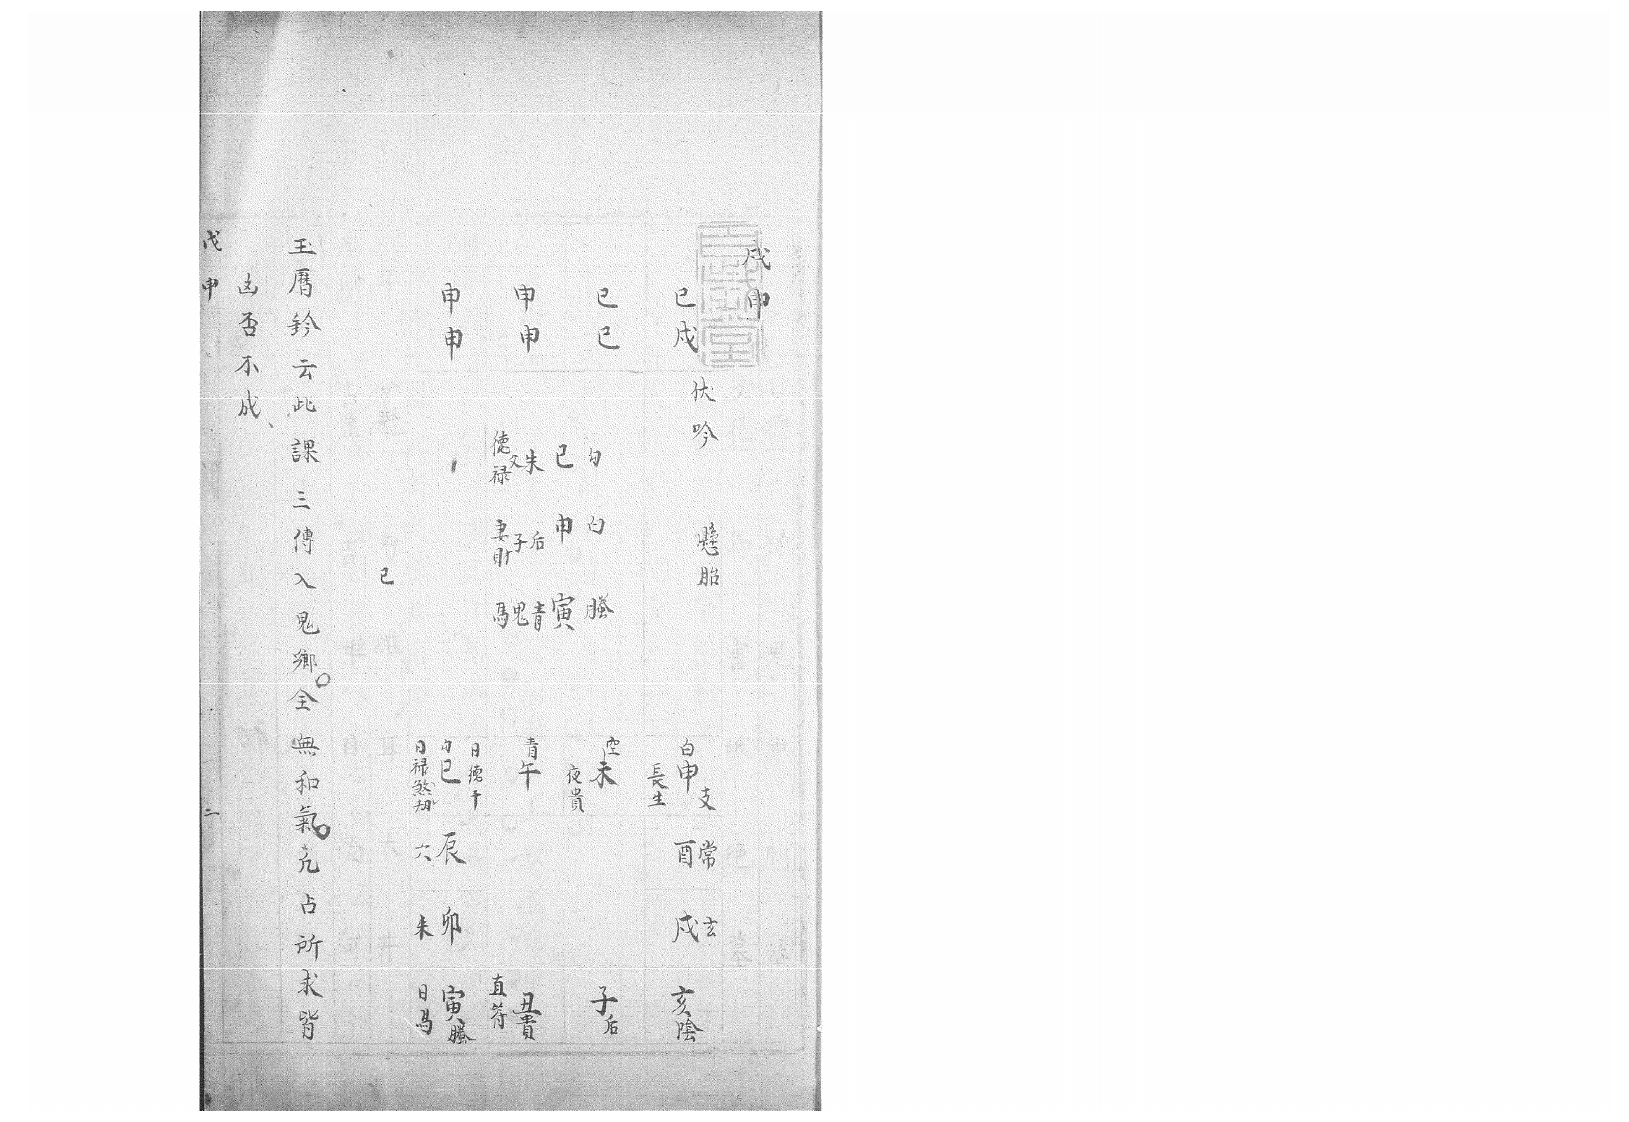 戊申
伏吟 懸胎
巳戊
巳巳
申申
申申
勾 白 螣
巳 申 寅
朱 后 青
父 子 鬼
德祿 妻財 馬
白申支 長生
空未 夜貴
青午
日德干
勾巳
日祿煞劫
常酉
玄戌
亥陰
子后
丑貴
直符
寅螣
日馬
卯朱
辰六
巳
玉曆鈐云此課三傳入鬼鄉全無和氣凡占所求皆
凶否不成
戊申 二